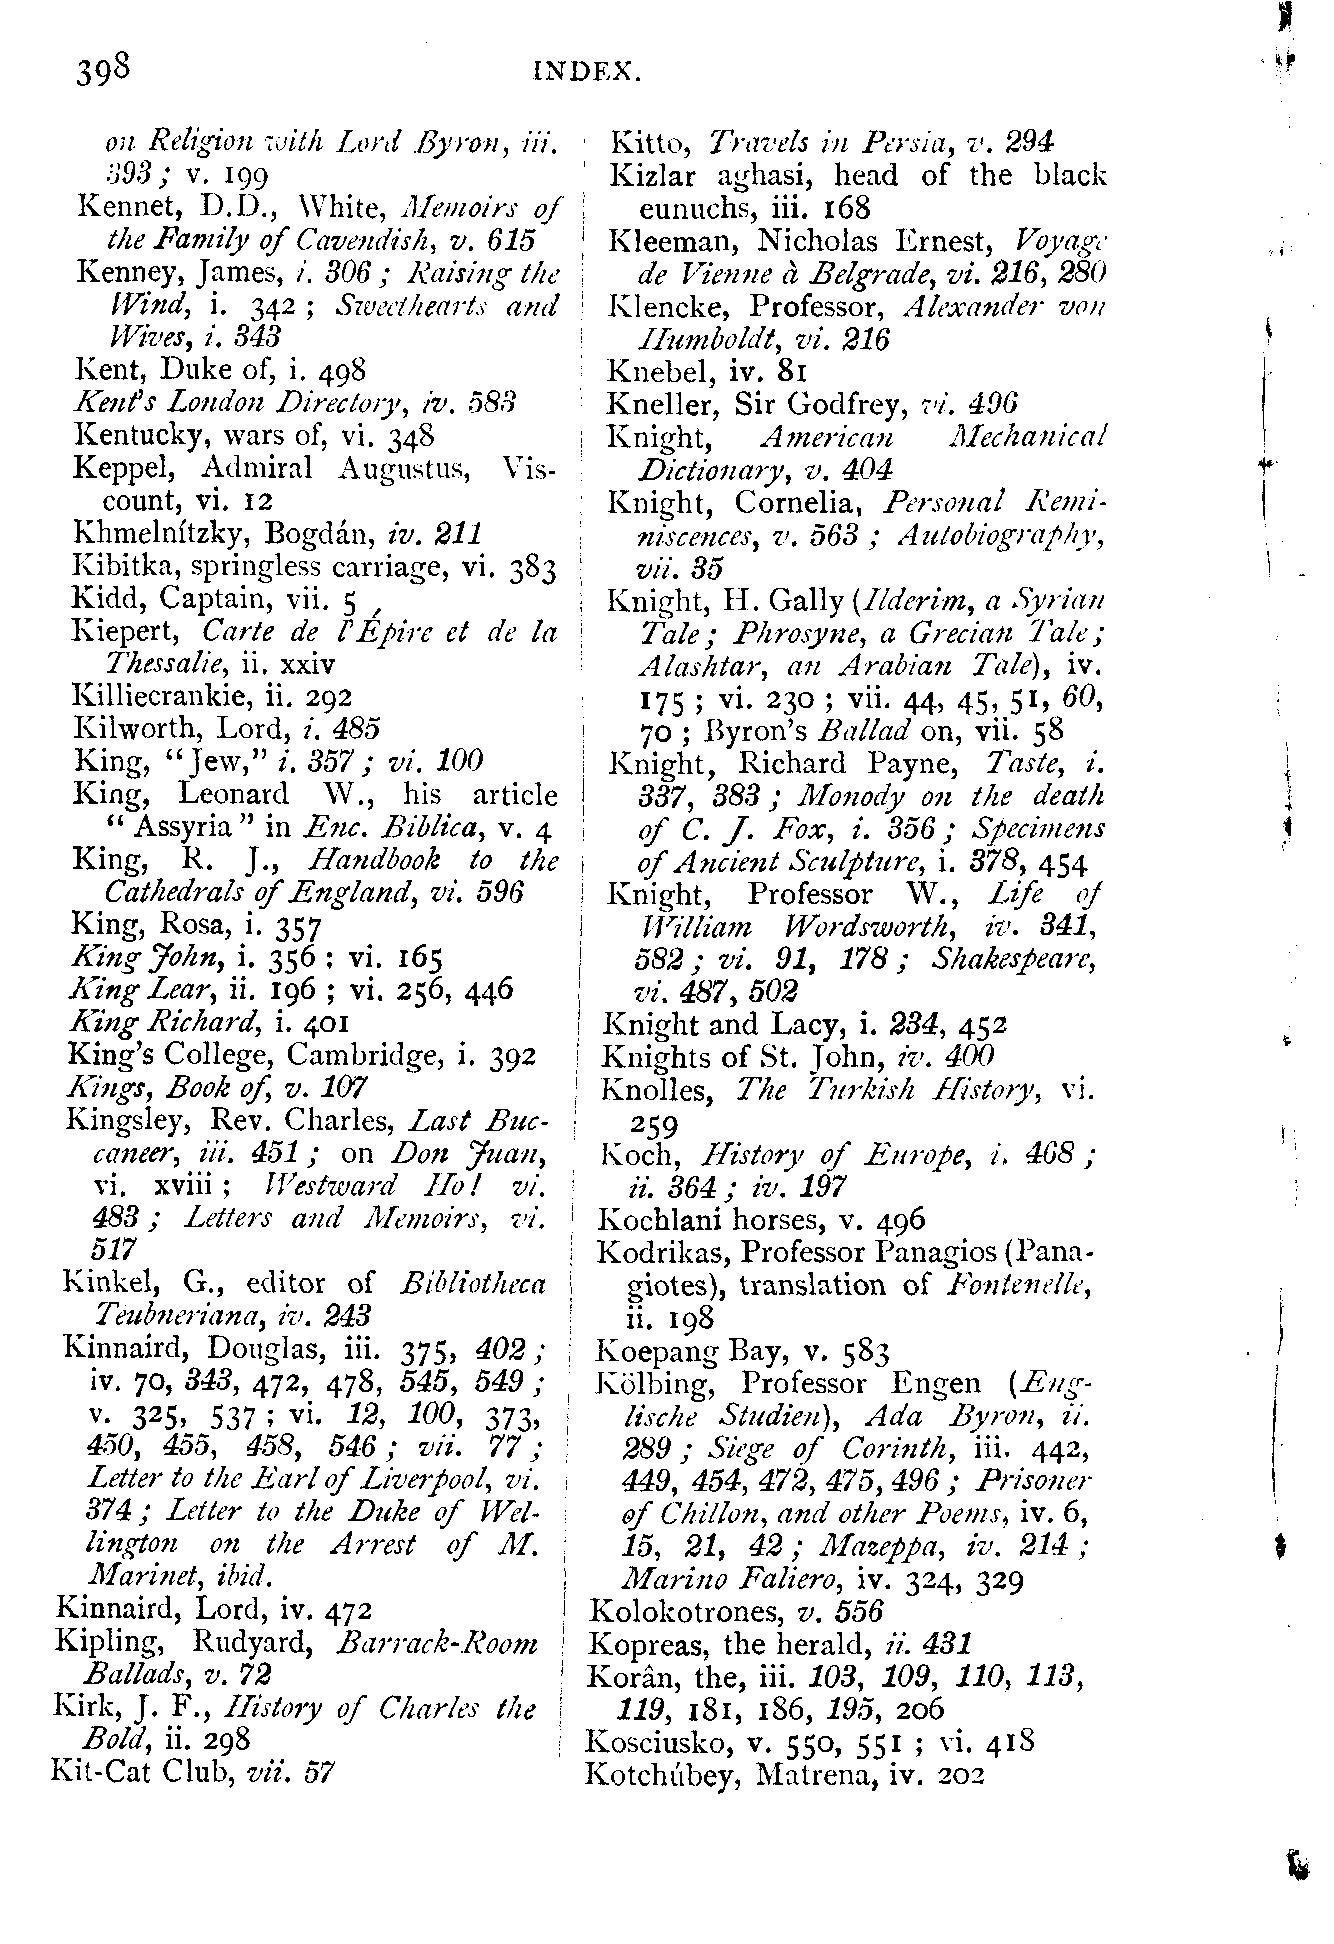 398
INDEX.
on Religion with Lord Byron, iii.
393; v. 199
Kennet, D.D., White, Memoirs of
the Family of Cavendish, v. 615
Kenney, James, i. 306; Raising the
Wind, i. 342; Sweethearts and
Wives, i. 343
Kent, Duke of, i. 498
Kent's London Directory, iv. 583
Kentucky, wars of, vi. 348
Keppel, Admiral Augustus, Vis-
count, vi. 12
Khmelnítzky, Bogdán, iv. 211
Kibitka, springless carriage, vi. 383
Kidd, Captain, vii. 5
Kiepert, Carte de l'Épire et de la
Thessalie, ii. xxiv
Killiecrankie, ii. 292
Kilworth, Lord, i. 485
King, "Jew," i. 357; vi. 100
King, Leonard W., his article
"Assyria" in Enc. Biblica, v. 4
King, R. J., Handbook to the
Cathedrals of England, vi. 596
King, Rosa, i. 357
King John, i. 356; vi. 165
King Lear, ii. 196; vi. 256, 446
King Richard, i. 401
King's College, Cambridge, i. 392
Kings, Book of, v. 107
Kingsley, Rev. Charles, Last Buc-
caneer, iii. 451; on Don Juan,
vi. xviii; Westward Ho! vi.
483; Letters and Memoirs, vi.
517
Kinkel, G., editor of Bibliotheca
Teubneriana, iv. 243
Kinnaird, Douglas, iii. 375, 402;
iv. 70, 343, 472, 478, 545, 549;
v. 325, 537; vi. 12, 100, 373,
450, 455, 458, 546; vii. 77;
Letter to the Earl of Liverpool, vi.
374; Letter to the Duke of Wel-
lington on the Arrest of M.
Marinet, ibid.
Kinnaird, Lord, iv. 472
Kipling, Rudyard, Barrack-Room
Ballads, v. 72
Kirk, J. F., History of Charles the
Bold, ii. 298
Kit-Cat Club, vii. 57
Kitto, Travels in Persia, v. 294
Kizlar aghasi, head of the black
eunuchs, iii. 168
Kleeman, Nicholas Ernest, Voyage
de Vienne à Belgrade, vi. 216, 280
Klencke, Professor, Alexander von
Humboldt, vi. 216
Knebel, iv. 81
Kneller, Sir Godfrey, vi. 496
Knight, American Mechanical
Dictionary, v. 404
Knight, Cornelia, Personal Remi-
niscences, v. 563; Autobiography,
vii. 35
Knight, H. Gally (Ilderim, a Syrian
Tale; Phrosyne, a Grecian Tale;
Alashtar, an Arabian Tale), iv.
175; vi. 230; vii. 44, 45, 51, 60,
70; Byron's Ballad on, vii. 58
Knight, Richard Payne, Taste, i.
337, 383; Monody on the death
of C. J. Fox, i. 356; Specimens
of Ancient Sculpture, i. 378, 454
Knight, Professor W., Life of
William Wordsworth, iv. 341,
582; vi. 91, 178; Shakespeare,
vi. 487, 502
Knight and Lacy, i. 234, 452
Knights of St. John, iv. 400
Knolles, The Turkish History, vi.
259
Koch, History of Europe, i. 468;
ii. 364; iv. 197
Kochlani horses, v. 496
Kodrikas, Professor Panagios (Pana-
giotes), translation of Fontenelle,
ii. 198
Koepang Bay, v. 583
Kölbing, Professor Engen (Eng-
lische Studien), Ada Byron, ii.
289; Siege of Corinth, iii. 442,
449, 454, 472, 475, 496; Prisoner
of Chillon, and other Poems, iv. 6,
15, 21, 42; Mazeppa, iv. 214;
Marino Faliero, iv. 324, 329
Kolokotrones, v. 556
Kopreas, the herald, ii. 431
Korân, the, iii. 103, 109, 110, 113,
119, 181, 186, 195, 206
Kosciusko, v. 550, 551; vi. 418
Kotchúbey, Matrena, iv. 202